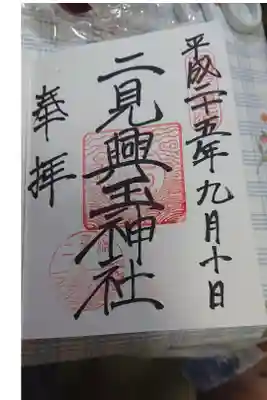 平成二十五年九月十日
二見興玉神社
奉拝